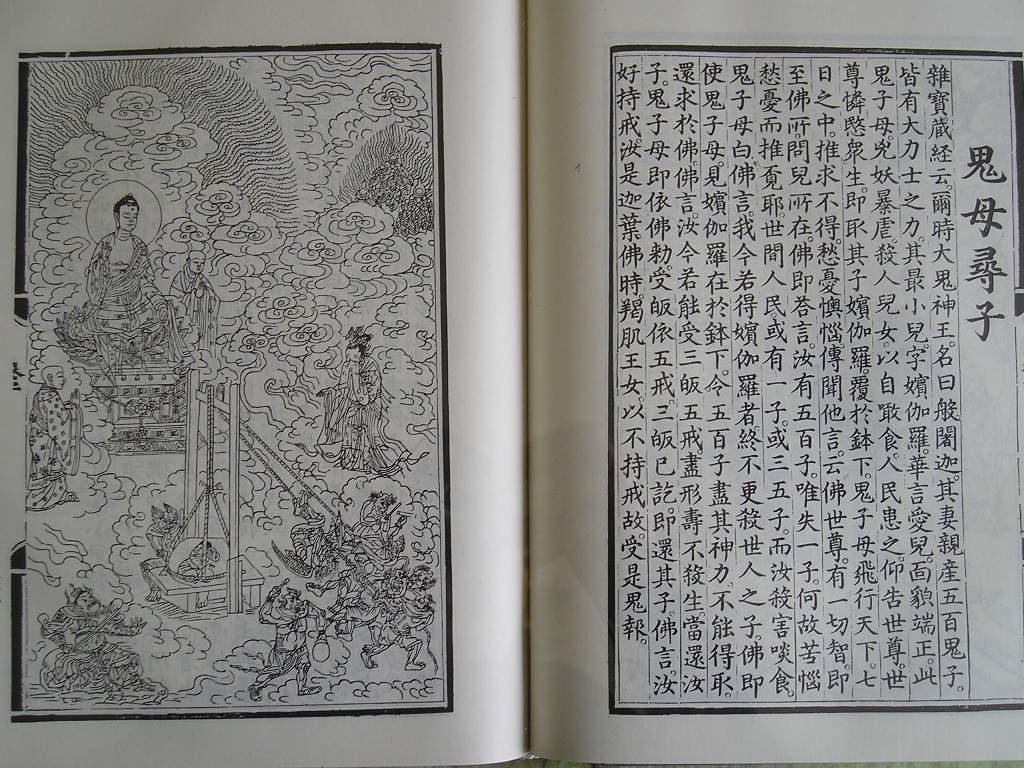 鬼母尋子
雜寶藏経云。爾時大鬼神王。名曰般闍迦。其妻親産五百鬼子。
皆有大力士之力。其最小兒。字嬪伽羅。華言愛兒。面貌端正。此
鬼子母。兇妖暴虐。殺人兒女。以自噉食。人民患之。仰告世尊。世
尊憐愍衆生。即取其子嬪伽羅。覆於鉢下。鬼子母飛行天下。七
日之中。推求不得。愁憂懊惱。傳聞他言。云佛世尊。有一切智。即
至佛所。問兒所在。佛即荅言。汝有五百子。唯失一子。何故苦惱
愁憂而推覔耶。世間人民。或有一子。或三五子。而汝殺害啖食。
鬼子母白佛言。我今若得嬪伽羅者。終不更殺世人之子。佛即
使鬼子母。見嬪伽羅在於鉢下。今五百子盡其神力。不能得取。
還求於佛。佛言。汝今若能受三皈五戒。盡形壽不殺生。當還汝
子。鬼子母即依佛勅。受皈依五戒。三皈已訖。即還其子。佛言。汝
好持戒。汝是迦葉佛時。羯肌王女。以不持戒故。受是鬼報。